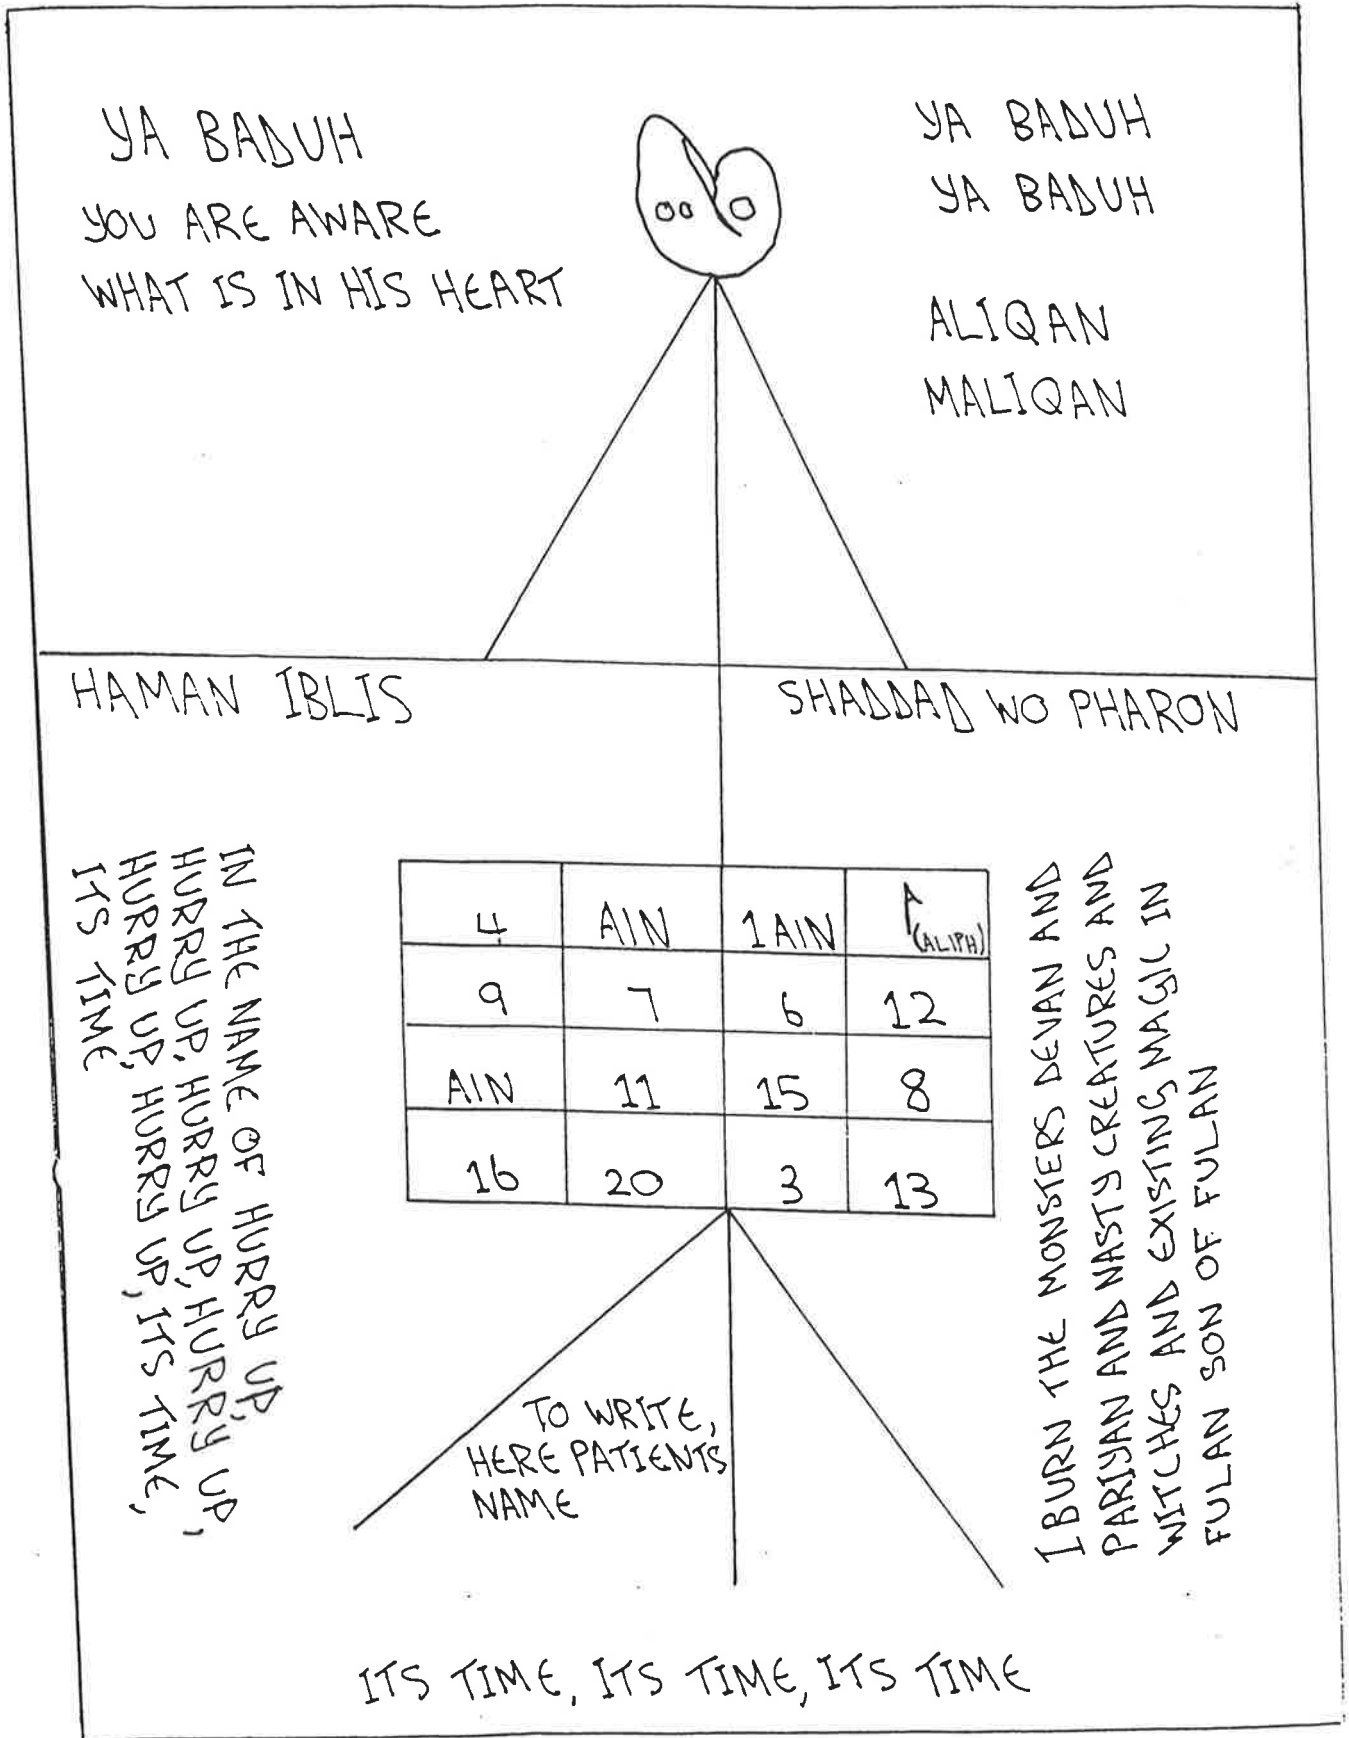 YA BADUH
YOU ARE AWARE
WHAT IS IN HIS HEART
YA BADUH
YA BADUH
ALIQAN
MALIQAN
HAMAN IBLIS
SHADDAD WO PHARON
IN THE NAME OF HURRY UP,
HURRY UP, HURRY UP, HURRY UP,
HURRY UP, HURRY UP, ITS TIME,
ITS TIME
4 AIN 1AIN A (ALIPH)
9 7 6 12
AIN 11 15 8
16 20 3 13
I BURN THE MONSTERS DEVAN AND
PARIYAN AND NASTY CREATURES AND
WITCHES AND EXISTING MAGIC IN
FULAN SON OF FULAN
TO WRITE,
HERE PATIENTS
NAME
ITS TIME, ITS TIME, ITS TIME